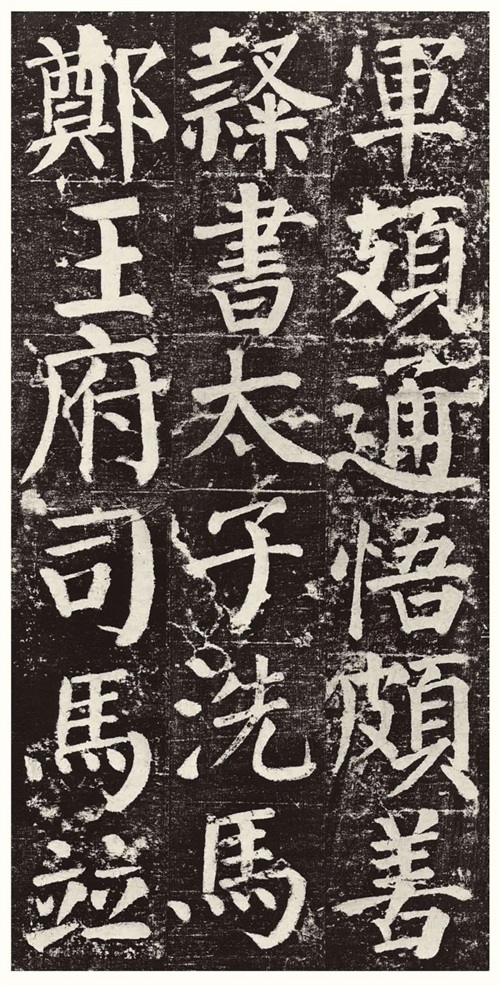 軍頍通悟頗善
隸書太子洗馬
鄭王府司馬並